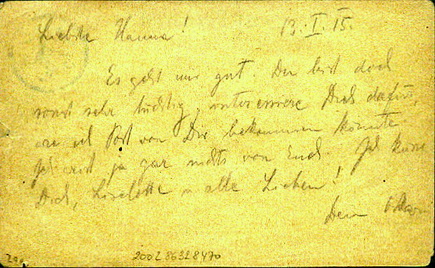 Liebste Hanna! 13.I.15.
Es geht uns gut. Du bist doch
sonst sehr tüchtig, interessiere Dich dafür,
wie ich Post von Dir bekommen könnte.
ja gar nichts von Euch. Ich küsse
Dich, Liselotte u alle Lieben!
Dein
200286328470